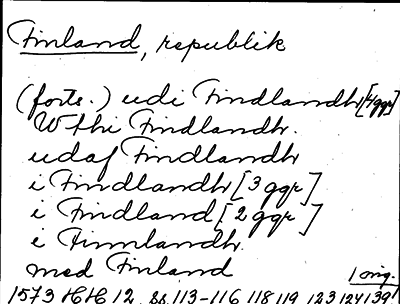 Finland, republik
(forts.) udi Findlandh [4ggr]
Wthi Findlandh.
udaf Findlandh
i Findlandh [3 ggr]
i Findland [2 ggr]
i Finnlandh.
med Finland
1 orig.
1573 HH 12 ss 113-116 118 119 123 124 139